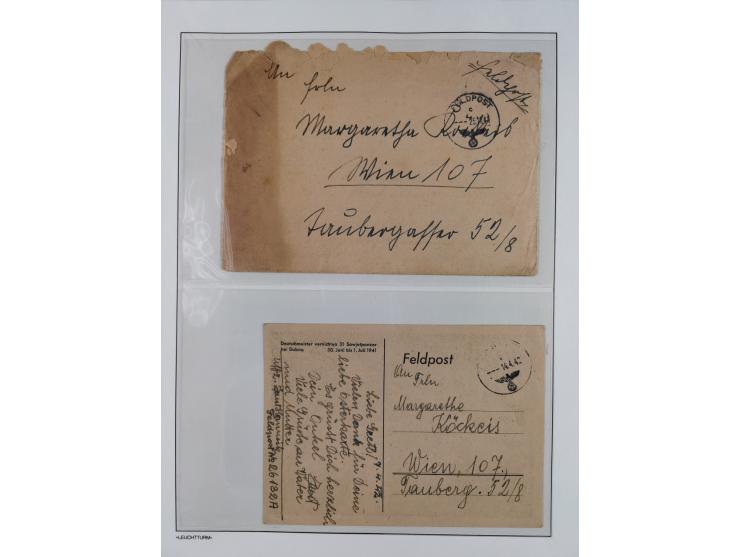 An
Frln
Margaretha
Wien 107
Taubergasser 52/8
Feldpost
FELDPOST
c
Deutschmeister vernichten 31 Sowjetpanzer
bei Dubno. 30. Juni bis 1. Juli 1941
Liebe Gretl! 9.4.42.
Vielen Dank für Deine
liebe Osterkarte.
Es grüsst Dich herzlich
Dein Onkel
Viele Grüsse an Vater
und Mutter
Uffz.
Feldpost No 26132A
Feldpost
14.4.42
An
Frln
Margarethe
Köckeis
Wien, 107.,
Tauberg. 52/8
»LEUCHTTURM«